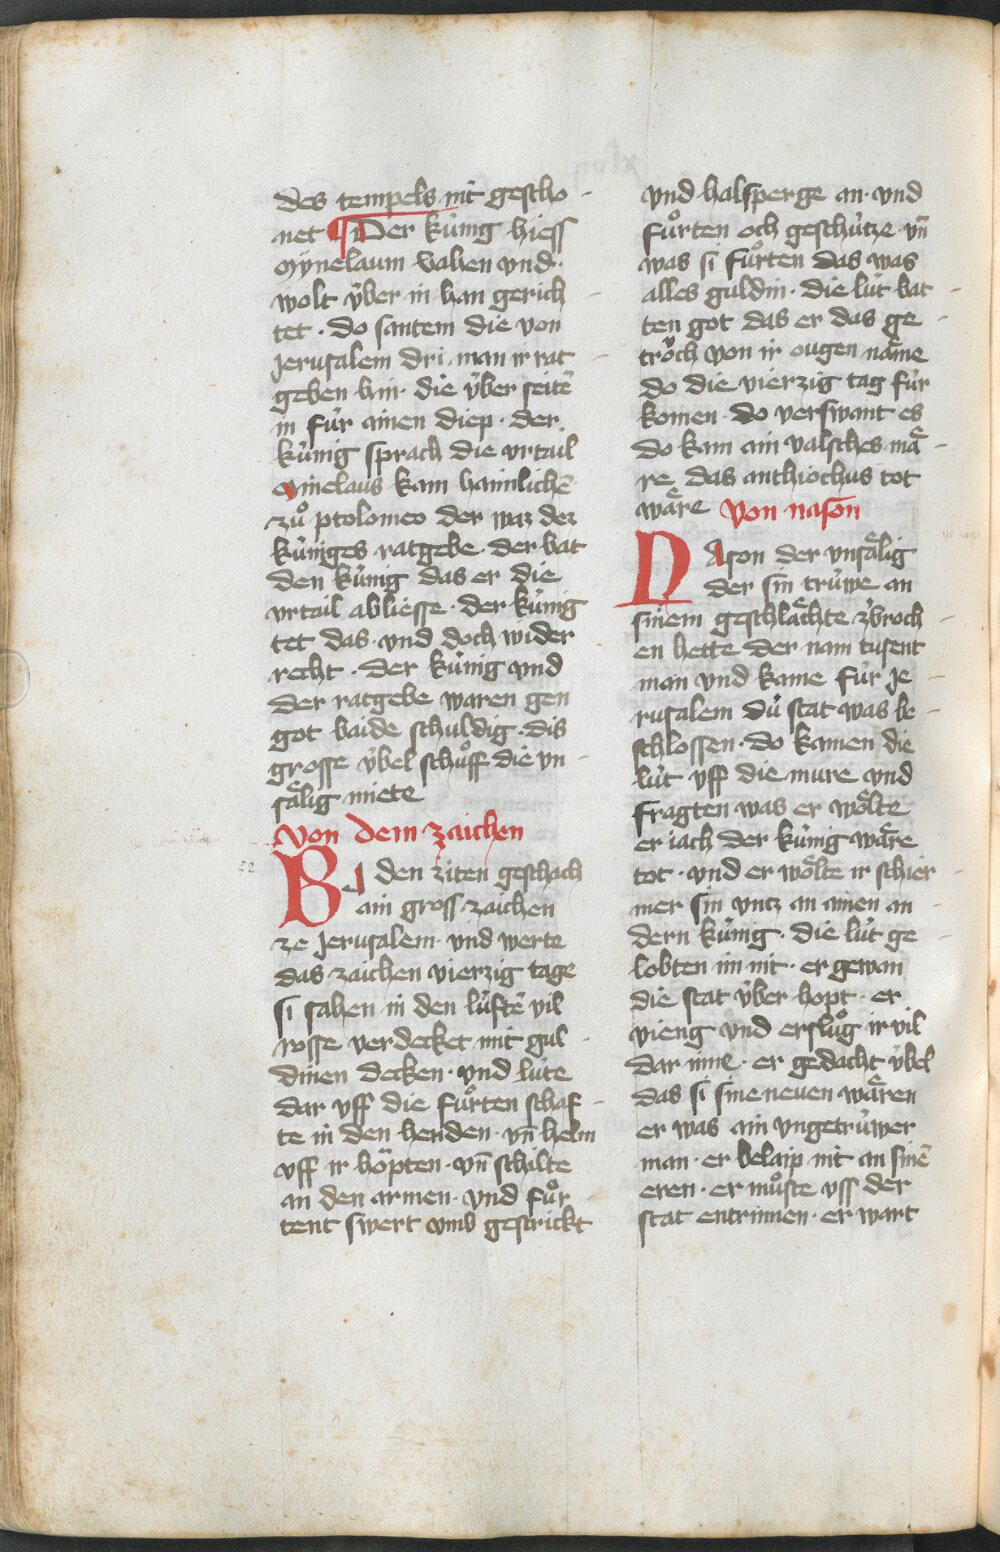 des tempels nit gescho
net ¶ Der kúnig hiess
Mynelaum vahen vnd
wolt v́ber in han gerich
tet · do santem die von
Jerusalem dri man ir rat
geben hin · die v́ber seitē
in fúr ainen diep · der
kúnig sprach die vrtail
Minelaus kam haimlichē
zů ptolomeo der waz dez
kúniges ratgebe · der bat
den kúnig das er die
vrtail abliesse · der kúnig
tet das · vnd doch wider
recht · der kúnig vnd
der ratgebe waren gen
got baide schuldig · dis
grosse v́bel schůff die vn
sälig miete
Von dem zaichen
Bei den ziten geschach
ain gross zaichen
ze Jerusalem · vnd werte
das zaichen vierzig tage
si sahen in den lúftē vil
rosse verdecket mit gul
dinen decken · vnd lúte
dar vff die fůrten schaf
te in den henden · vn̄ helm
vff ir höpten · vn̄ schilte
an den armen · vnd fůr
tent swert vmb gestrickt
vnd halsperge an · vnd
fůrten och geschútze · vn̄
was si fůrten das was
alles guldin · die lút bat
ten got das er das ge
tröch von ir ougen näme
do die vierzig tag fúr
komen · do verswant es
do kam ain valsches mä
re das anthiochus tot
wäre Von nason
Nason der vnsälig
der sin trúwe an
sinem geschlächte zbroch
en hette der nam tusent
man vnd kame fúr Je
rusalem dú stat was be
schlossen · do kamen die
lút vff die mure vnd
fragten was er wölte
er iach der kúnig wäre
tot · vnd er wölte ir schier
mer sin vntz an ainen an
dern kúnig · die lút ge
lobten im nit · er gewan
die stat v́ber hopt · er
vieng vnd erslůg ir vil
dar inne · er gedacht v́bel
das si sine neuen wären
er was ain vngetrúwer
man · er belaip nit an sinē
eren · er můste vss der
stat entrinnen · er wart
52